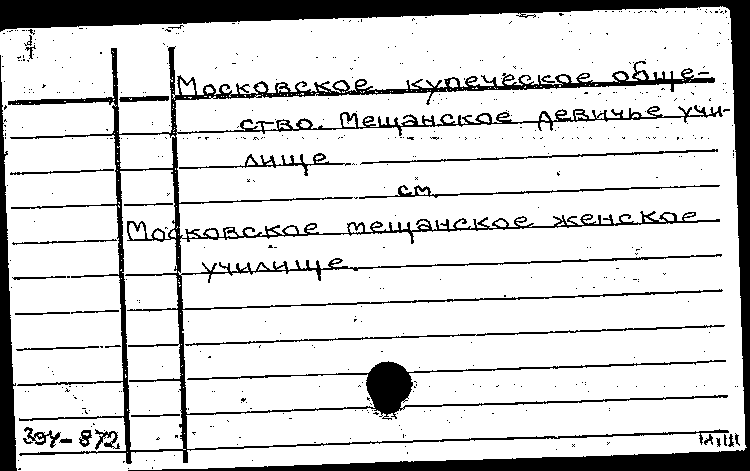 Московское купеческое обще-
ство. Мещанское девичье учи-
лище
см.
Московское мещанское женское
училище.
304-872